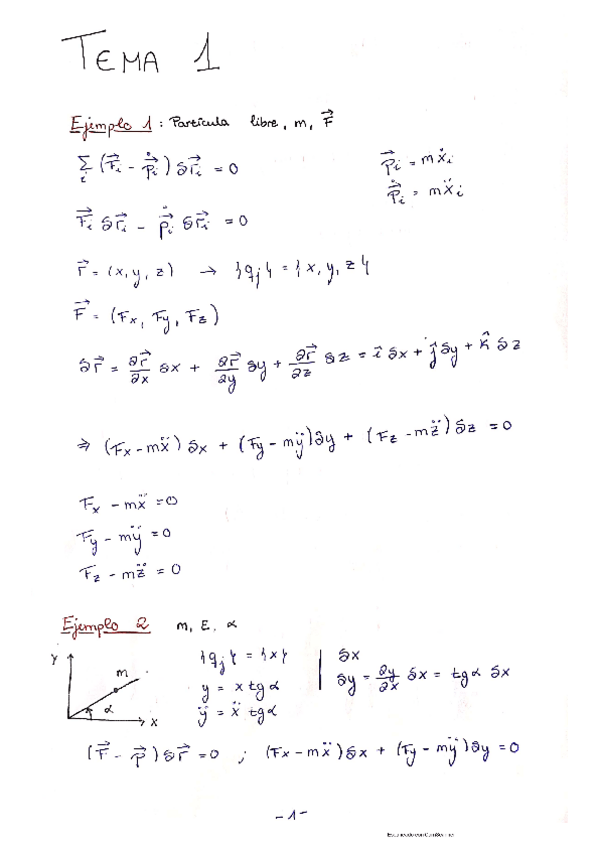 TEMA 1
Ejemplo 1: Partícula libre, m, F⃗
∑ᵢ (F⃗ᵢ - ṗ⃗ᵢ) δr⃗ᵢ = 0
p⃗ᵢ = mẋᵢ
ṗ⃗ᵢ = mẍᵢ
F⃗ᵢ δr⃗ᵢ - ṗ⃗ᵢ δr⃗ᵢ = 0
r⃗ = (x, y, z) → {qⱼ} = {x, y, z}
F⃗ = (Fx, Fy, Fz)
δr⃗ = ∂r⃗/∂x δx + ∂r⃗/∂y δy + ∂r⃗/∂z δz = î δx + ĵ δy + k̂ δz
⇒ (Fx - mẍ) δx + (Fy - mÿ) δy + (Fz - mz̈) δz = 0
Fx - mẍ = 0
Fy - mÿ = 0
Fz - mz̈ = 0
Ejemplo 2 m, E, α
Y
m
α
X
{qⱼ} = {x}
y = x tgα
ÿ = ẍ tgα
δx
δy = ∂y/∂x δx = tgα δx
(F⃗ - ṗ⃗) δr⃗ = 0 ; (Fx - mẍ) δx + (Fy - mÿ) δy = 0
- 1 -
Escaneado con CamScanner